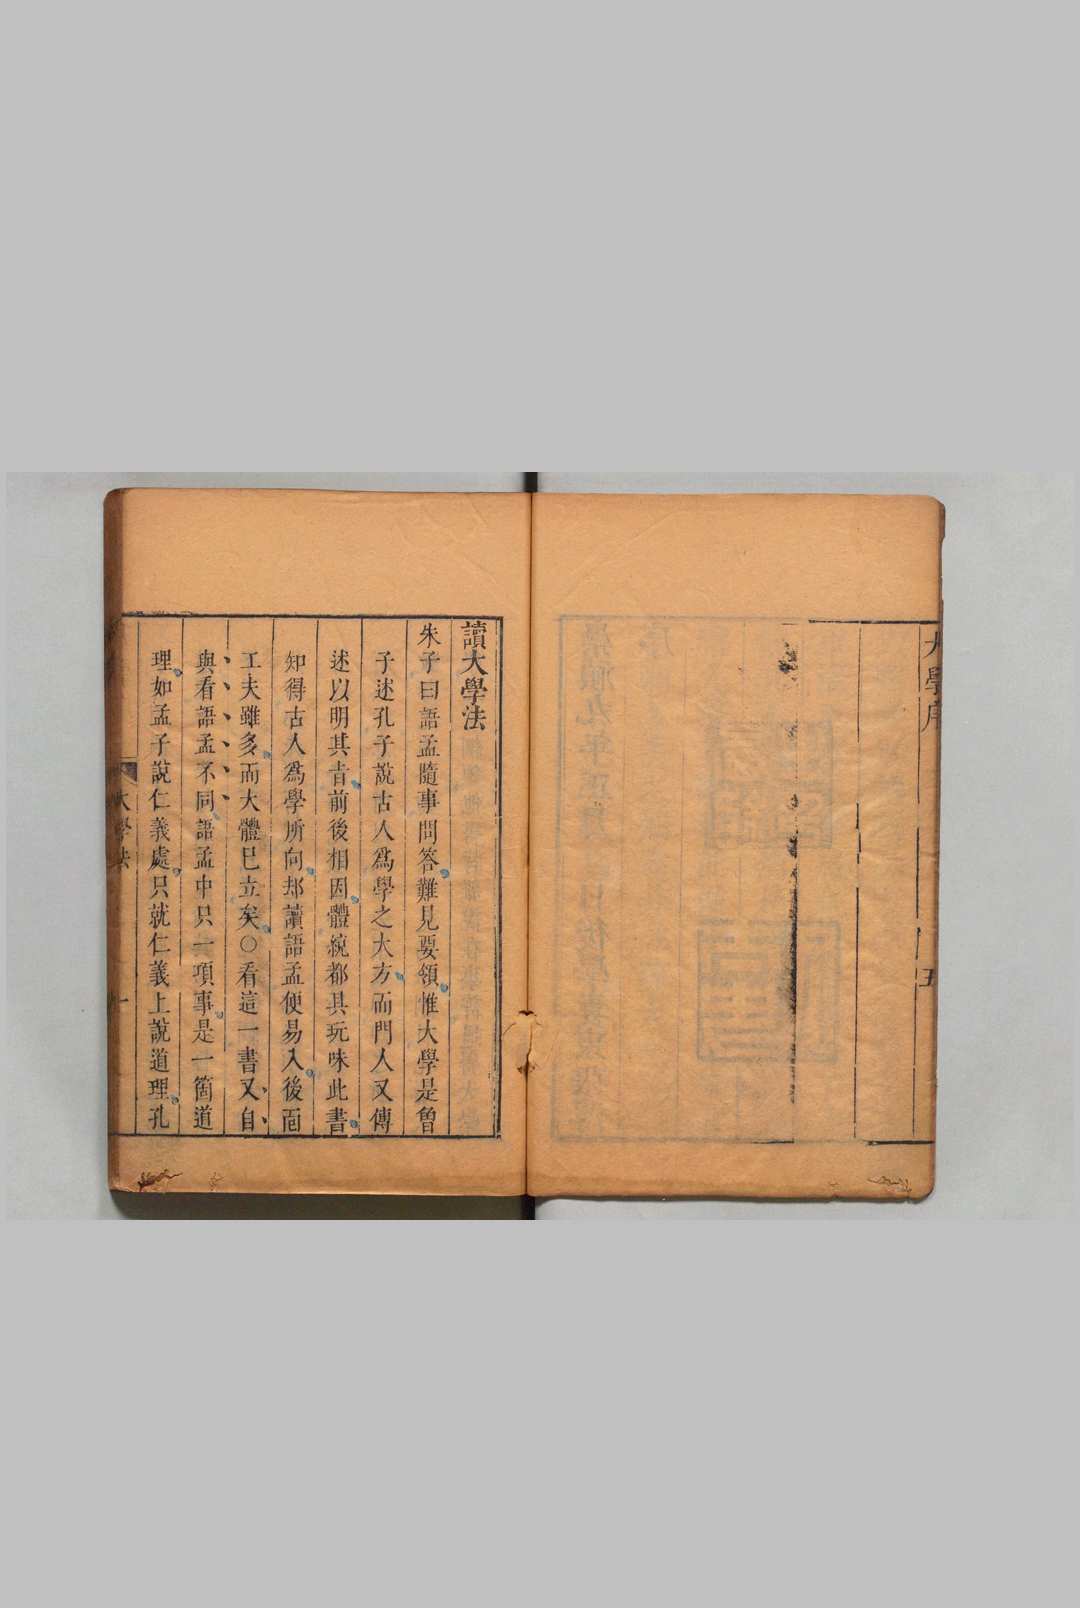 大學序
五
讀大學法
朱子曰語孟隨事問答難見要領惟大學是曾
子述孔子說古人爲學之大方而門人又傳
述以明其旨前後相因體統都具玩味此書
知得古人爲學所向却讀語孟便易入後面
工夫雖多而大體已立矣〇看這一書又自
與看語孟不同語孟中只一項事是一箇道
理如孟子說仁義處只就仁義上說道理孔
大學法
一